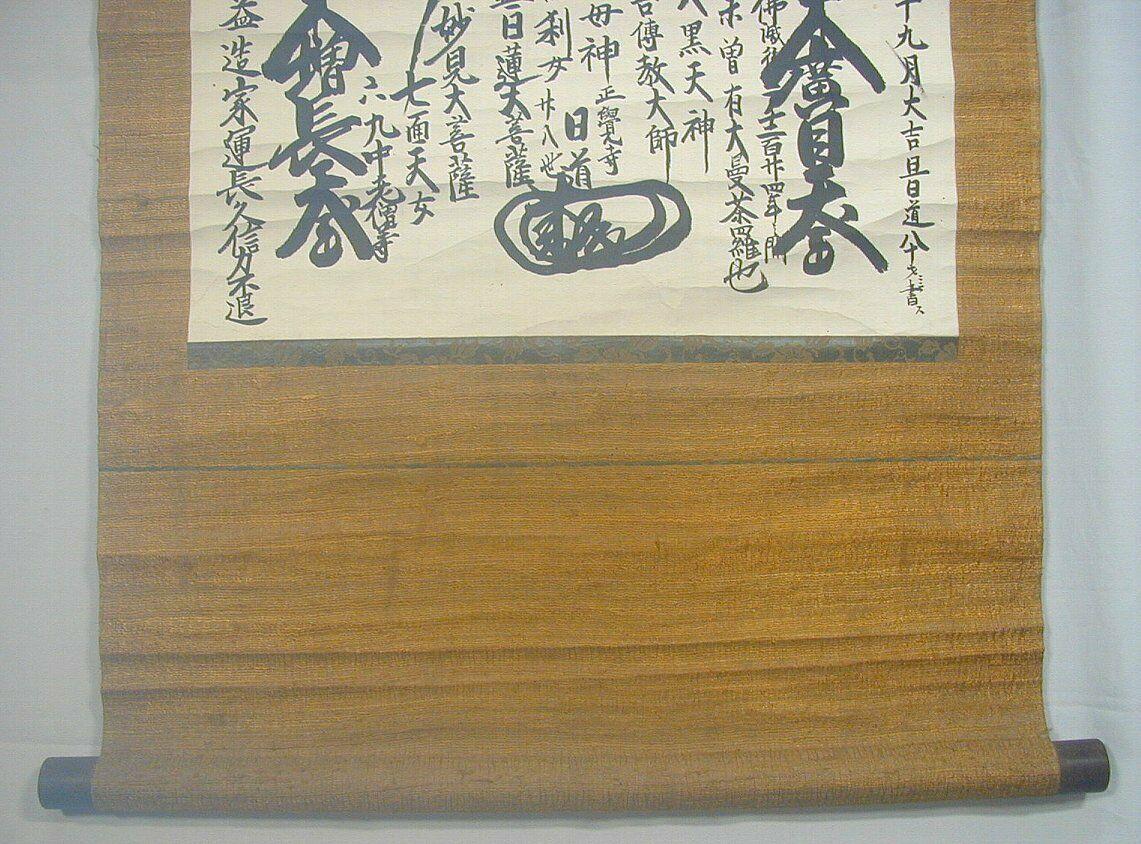 十九月大吉旦日道八十才書ス
大廣目天
佛滅後
百廿四年之間
未曾有大曼荼羅也
黒天神
傳教大師
母神
正覺寺
廿八世
日道
利女
日蓮大菩薩
妙見大菩薩
七面天女
六九中老僧等
大增長天
益造家運長久信力不退